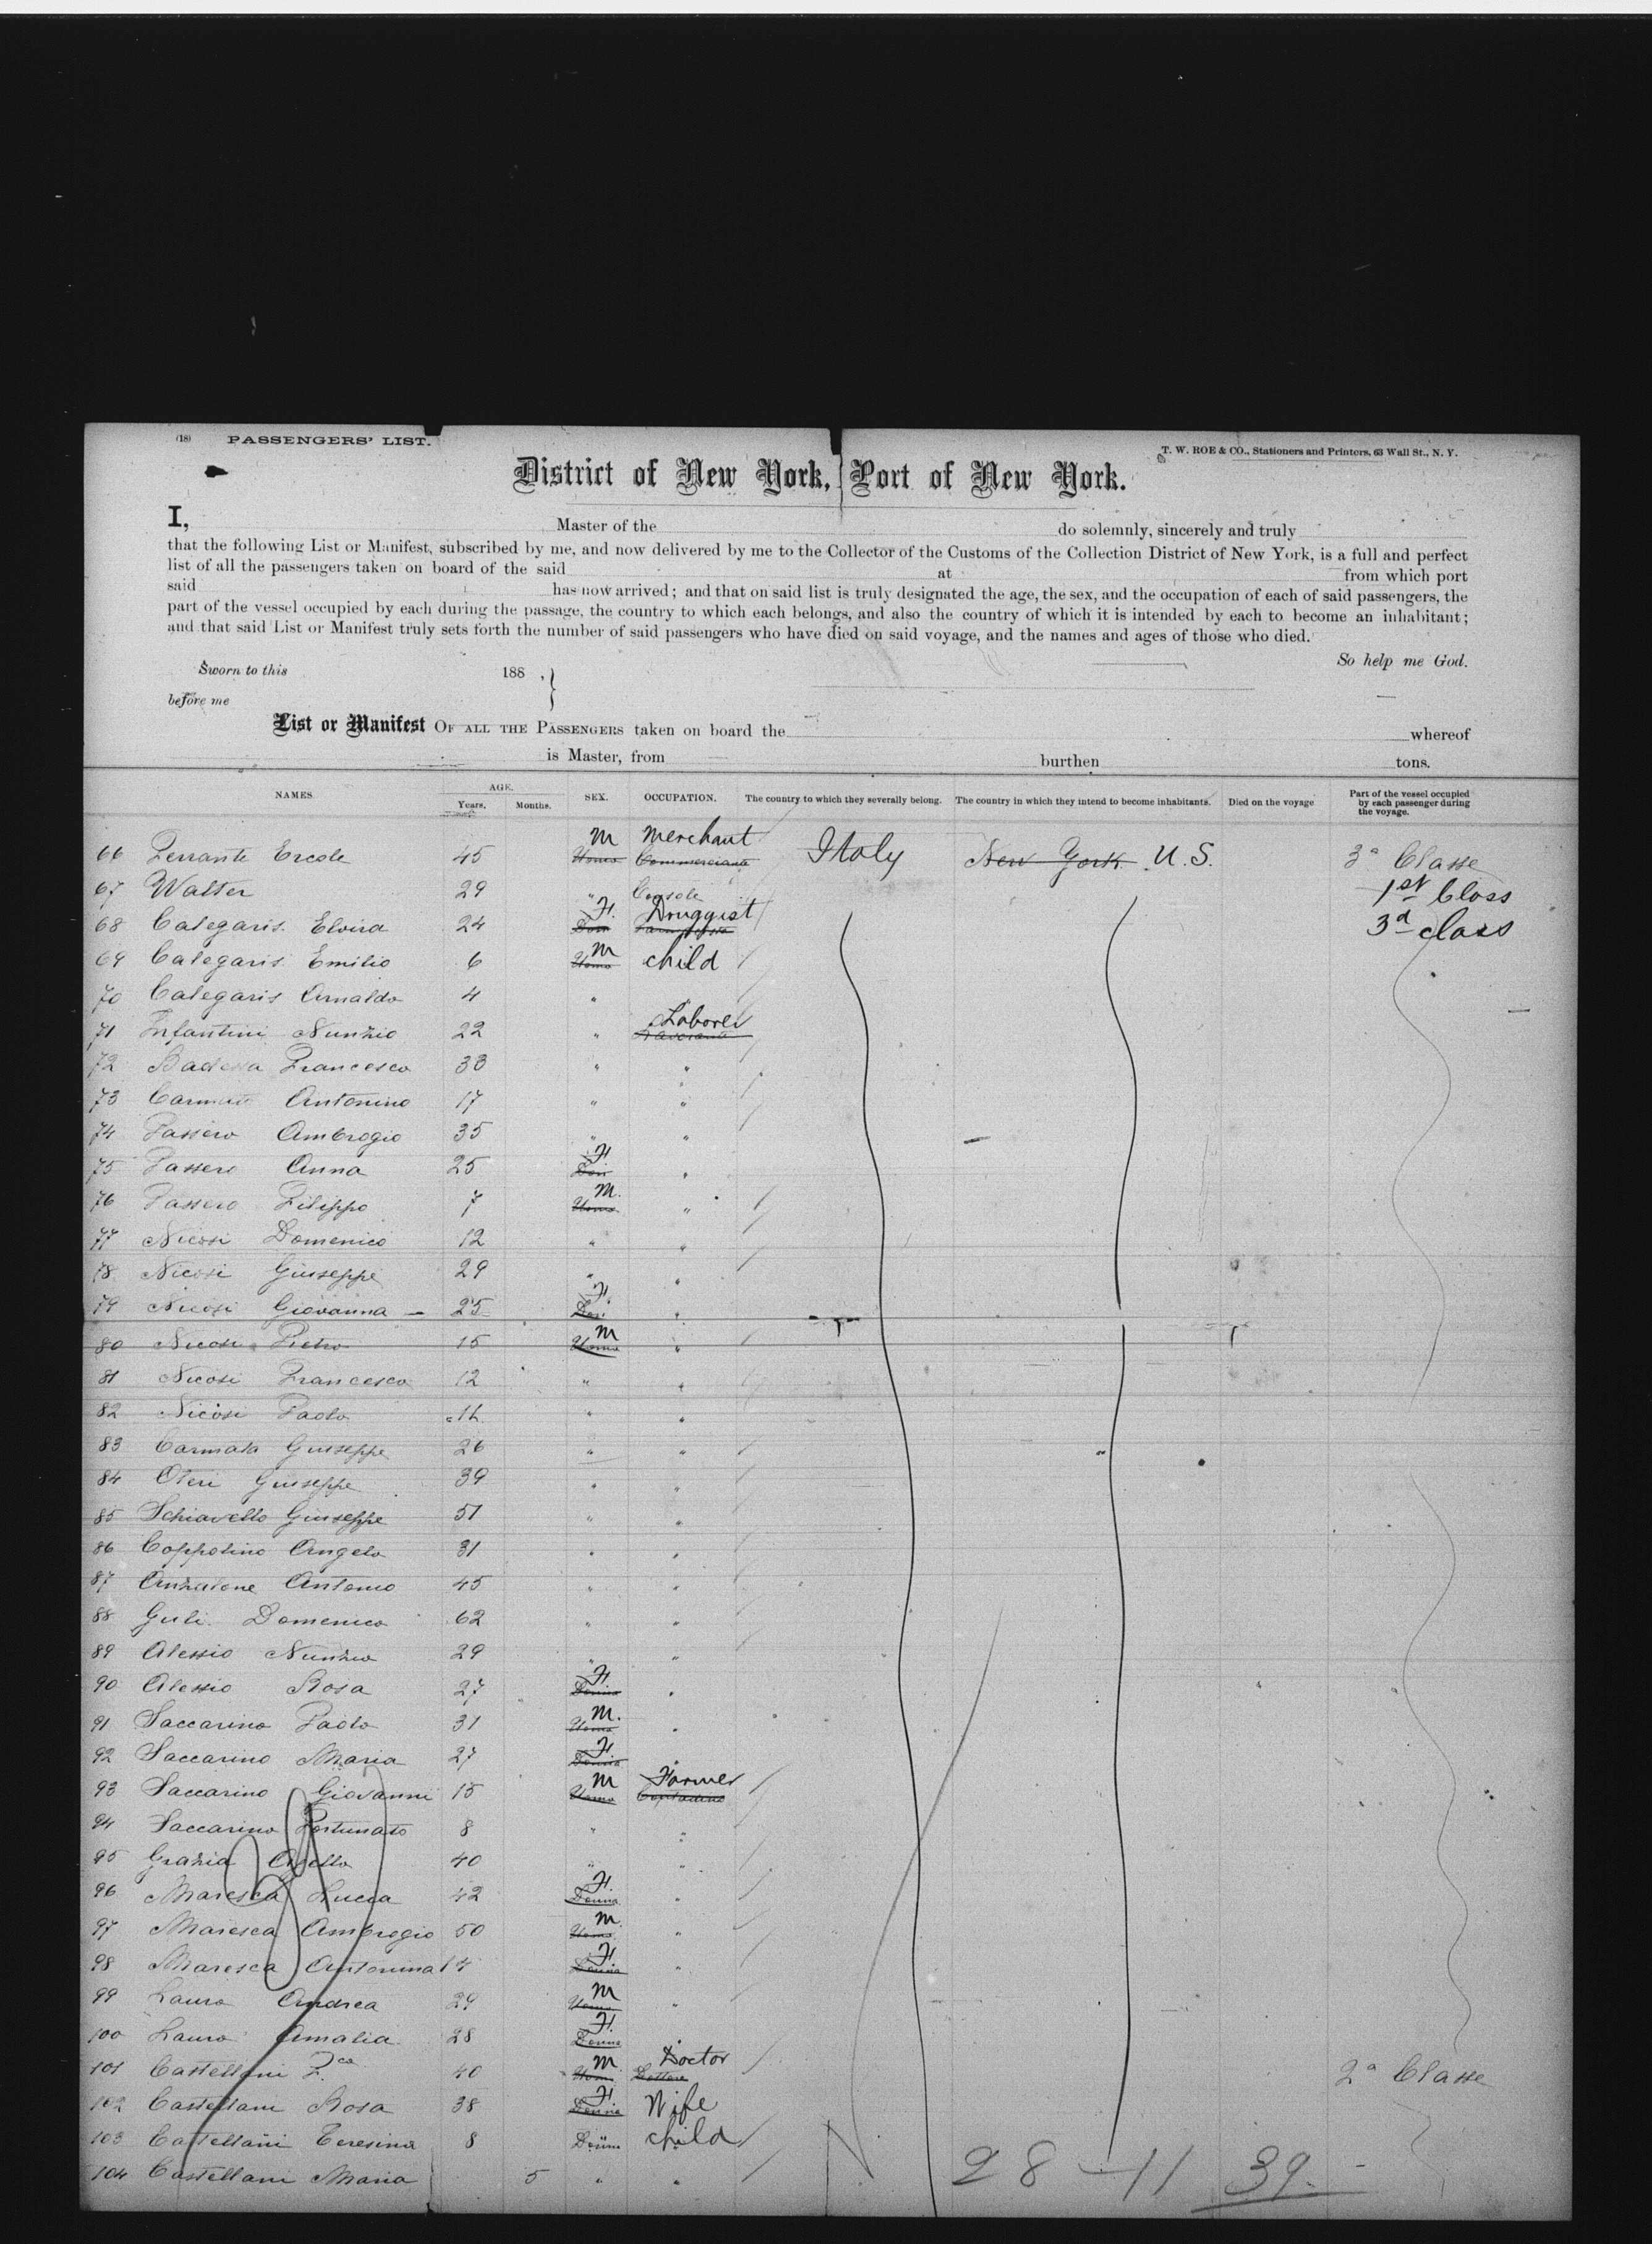 (18) PASSENGERS' LIST.
T. W. ROE & CO., Stationers and Printers, 63 Wall St., N. Y.
District of New York, Port of New York.
I, Master of the do solemnly, sincerely and truly
that the following List or Manifest, subscribed by me, and now delivered by me to the Collector of the Customs of the Collection District of New York, is a full and perfect
list of all the passengers taken on board of the said at from which port
said has now arrived; and that on said list is truly designated the age, the sex, and the occupation of each of said passengers, the
part of the vessel occupied by each during the passage, the country to which each belongs, and also the country of which it is intended by each to become an inhabitant;
and that said List or Manifest truly sets forth the number of said passengers who have died on said voyage, and the names and ages of those who died.
So help me God.
Sworn to this 188 , }
before me
List or Manifest OF ALL THE PASSENGERS taken on board the whereof
is Master, from burthen tons.
NAMES AGE. Years. Months. SEX. OCCUPATION. The country to which they severally belong. The country in which they intend to become inhabitants. Died on the voyage Part of the vessel occupied by each passenger during the voyage.
66 Ferrante Ercole 45 M Uomo Merchant Commerciante Italy New York U.S. 3a Classe
67 Walter 29 " Console 1st Class
68 Calegaris Elvira 24 F. Don Druggist 3d class
69 Calegaris Emilio 6 M Uomo child
70 Calegaris Arnaldo 4 "
71 Infantini Nunzio 22 " Laborer
72 Badessa Francesco 33 " "
73 Antonino 17 " "
74 Passero Ambrogio 35 " "
75 Passero Anna 25 F Don "
76 Passero Filippo 7 M. Uomo "
77 Nicosi Domenico 12 " "
78 Nicosi Giuseppe 29 " "
79 Nicosi Giovanna 25 F. Don "
80 Nicosi Pietro 15 M Uomo "
81 Nicosi Francesco 12 " "
82 Nicosi Paolo " "
83 Carmata Giuseppe 26 " "
84 Oteri Giuseppe 39 " "
85 Schiavello Giuseppe 51 " "
86 Coppolino Angelo 31 " "
87 Antonio 45 " "
88 Guli Domenico 62 " "
89 Alessio Nunzio 29 " "
90 Alessio Rosa 27 F. Donna "
91 Saccarino Paolo 31 M. Uomo "
92 Saccarino Maria 27 F Donna "
93 Saccarino Giovanni 15 M Uomo Farmer Contadino
94 Saccarino Fortunato 8 " "
95 Grazia 40 " "
96 Maresca Lucca 42 F. Donna "
97 Maresca Ambrogio 50 M. Uomo "
98 Maresca Antonina 14 F Donna "
99 Lauro Andrea 29 M Uomo "
100 Lauro Amalia 28 F. Donna "
101 Castellani Fco 40 M. Uomo Doctor Dottore 2a Classe
102 Castellani Rosa 38 F Donna Wife
103 Castellani Teresina 8 Donna child
104 Castellani Maria 5 " "
28 - 11 39.